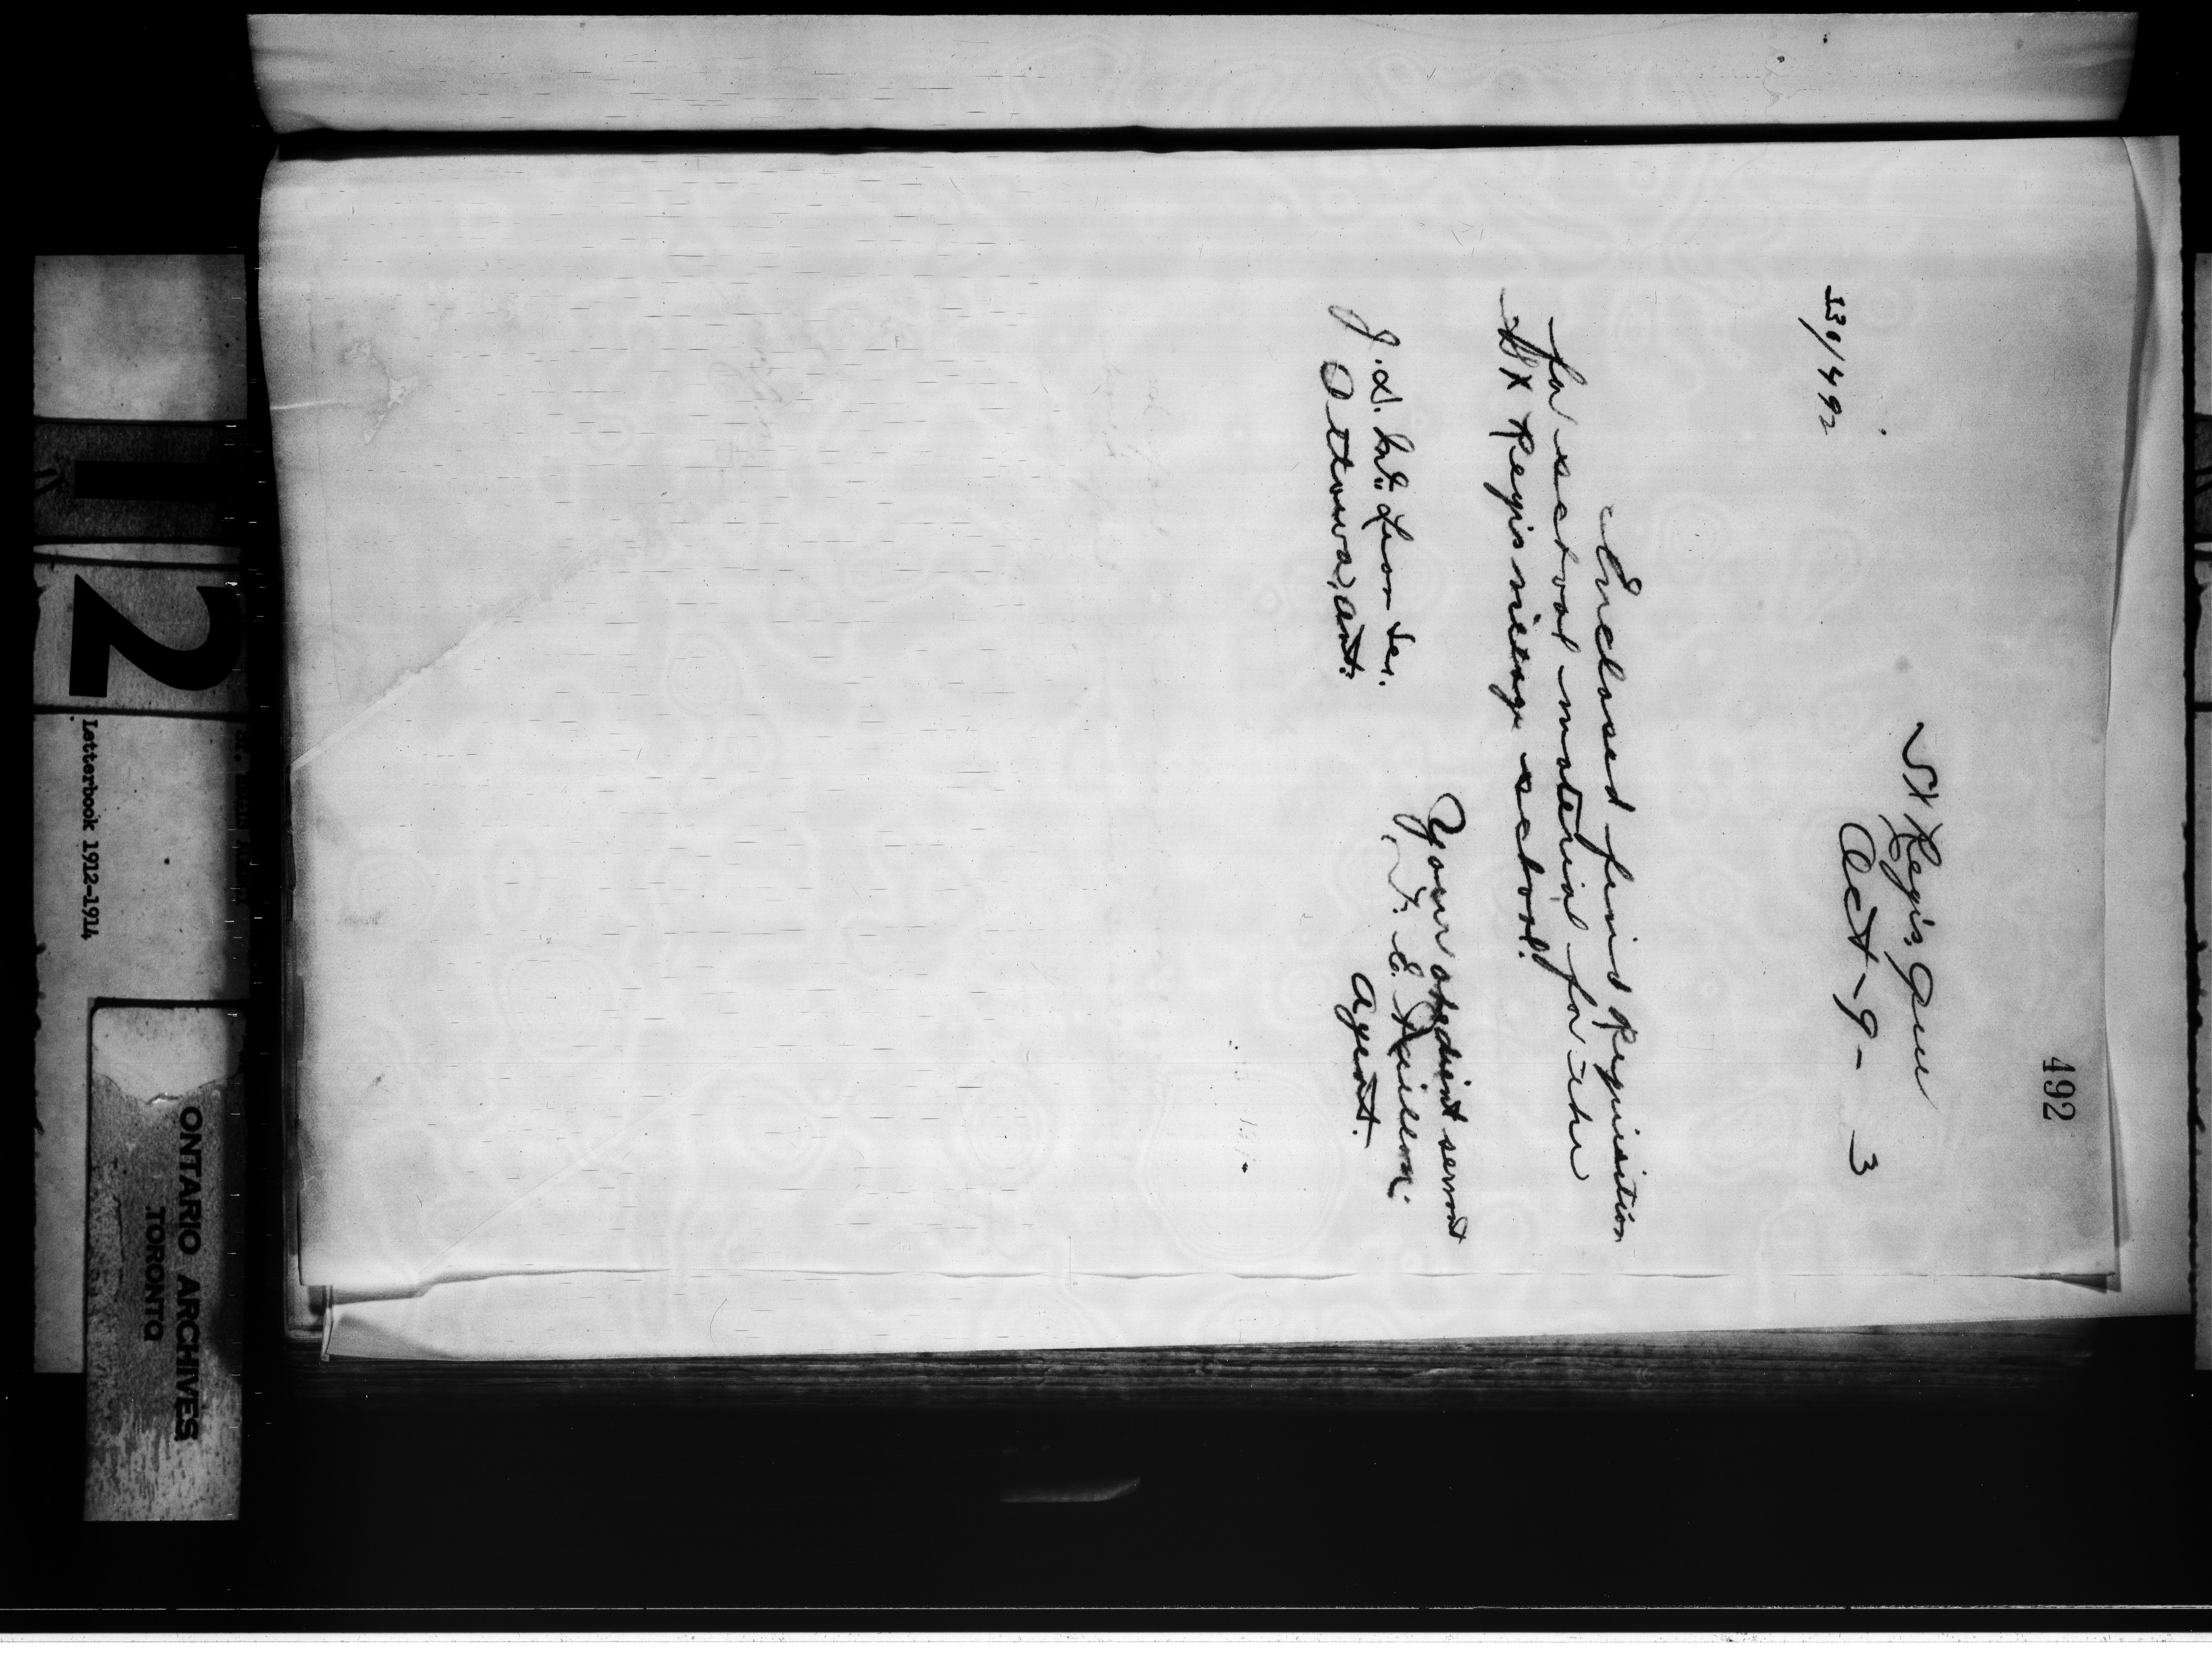 492
St Regis, Que
Oct - 9 - 3
130/492
Enclosed find Requisition
for school material for the
St Regis village school.
Your obedient servant
Agent.
J. D. McLean Sec.
Ottawa, Ont.
12
Letterbook 1912-1914
ONTARIO ARCHIVES
TORONTO